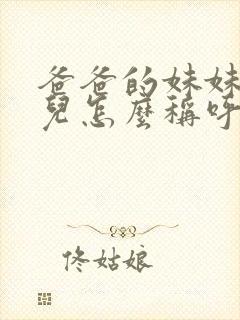 爸爸的妹妹
兒怎麼稱呼
佟姑娘